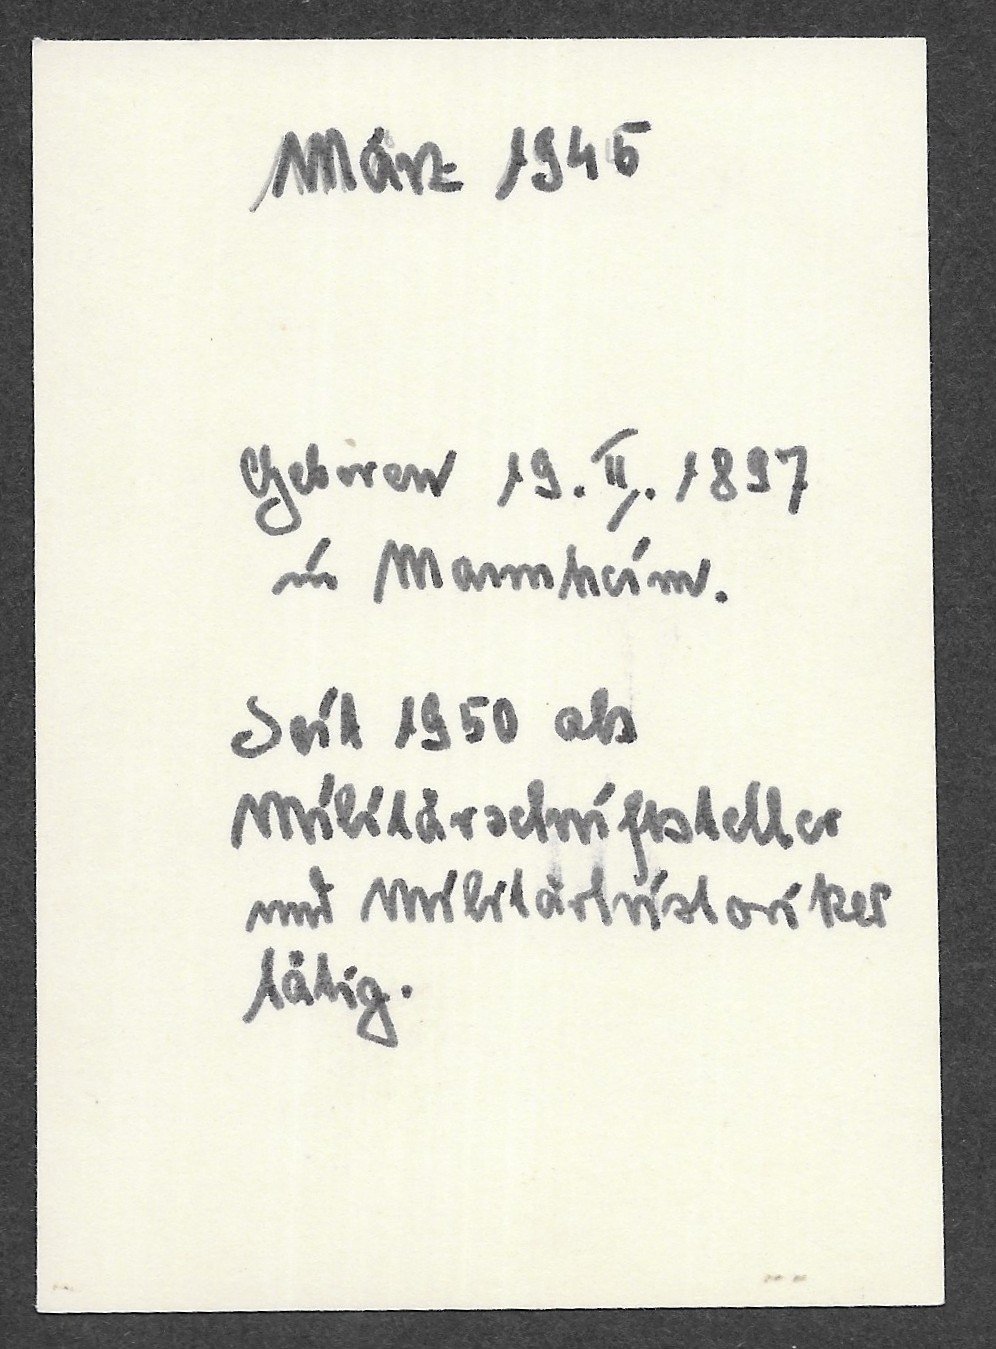 März 1945
Geboren 19. II. 1897
in Mannheim.
Seit 1950 als
Militärschriftsteller
und Militärhistoriker
tätig.